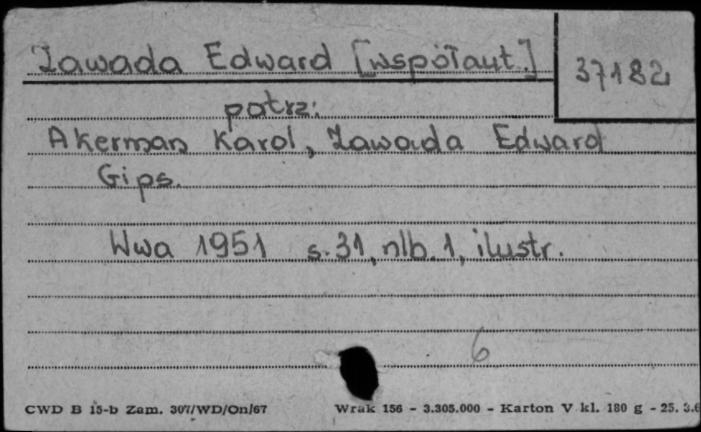 Zawada Edward [współaut.]
37182
patrz:
Akerman Karol, Zawada Edward
Gips.
Wwa 1951 s. 31, nlb. 1, ilustr.
6
CWD B 15-b Zam. 307/WD/On/67 Wrak 156 - 3.305.000 - Karton V kl. 180 g - 25. 3.6